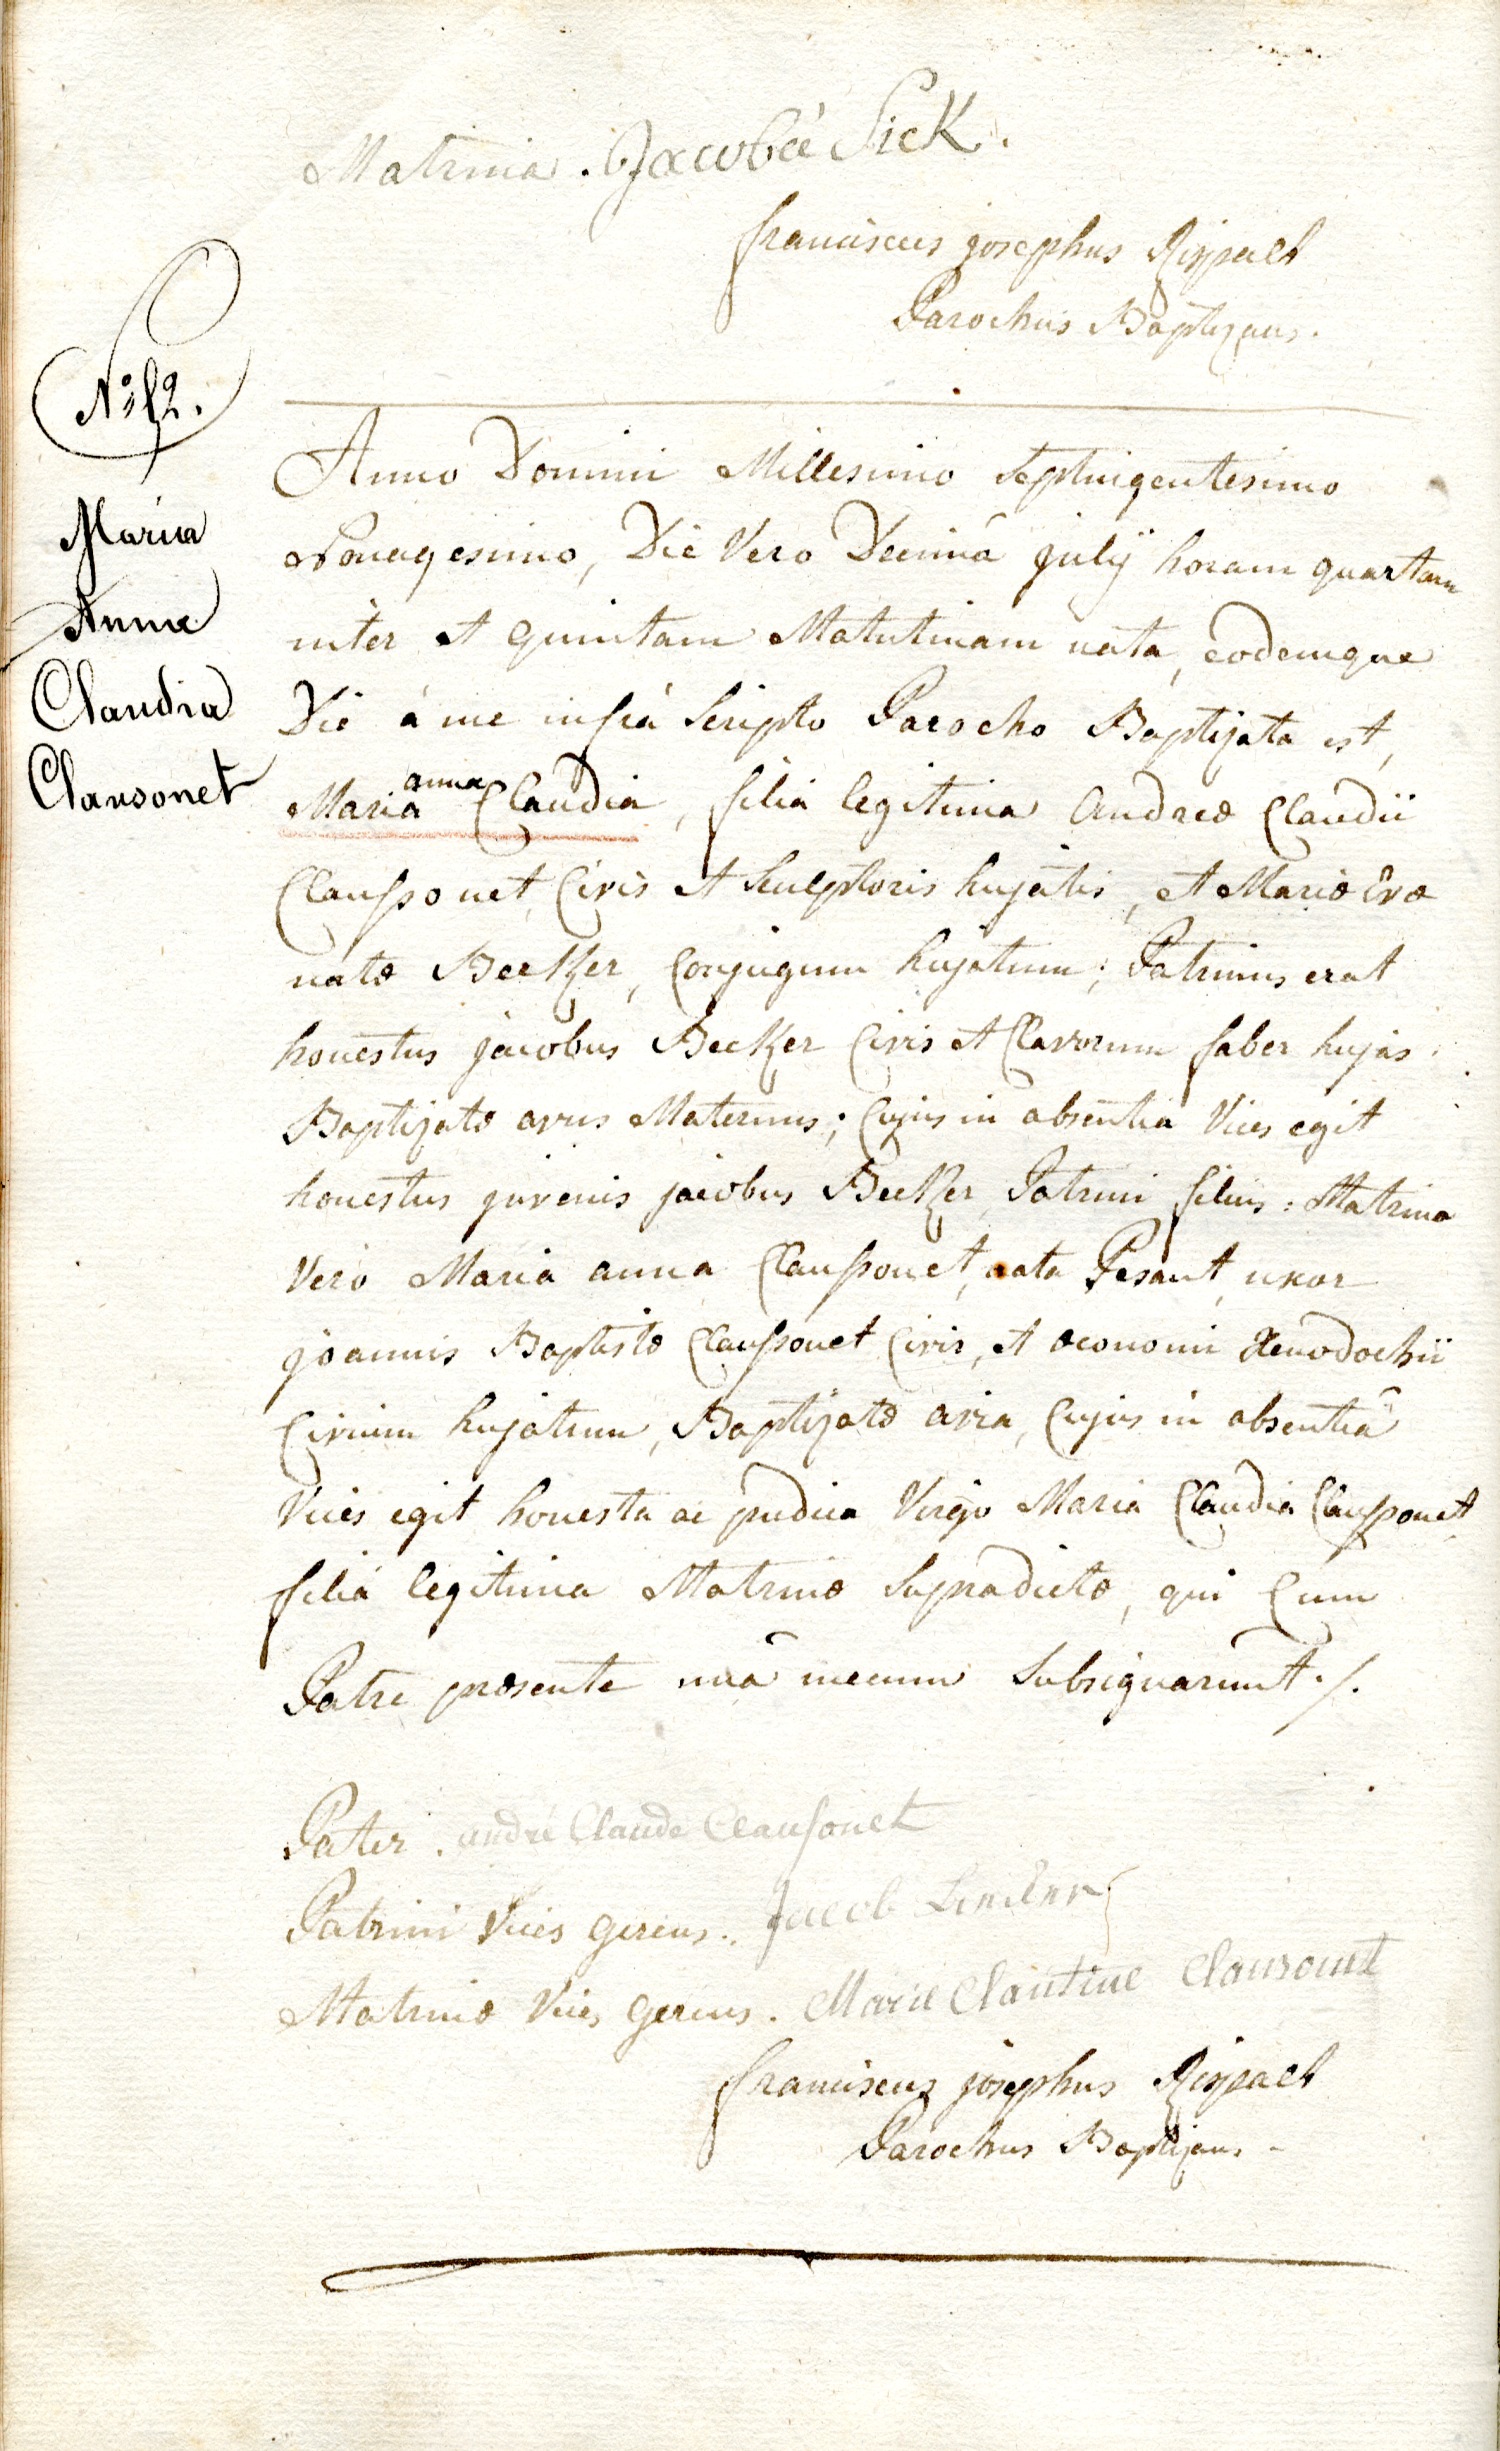 Matrina . Jacobé Sick .
franciscus josephus Rispalt
Parochus Baptizans .
N°: 52.
Maria
Anna
Claudia
Clausonet
Anno Domini Millesimo Septingentesimo
Nonagesimo, Die Vero Decimâ julÿ horam quartam
inter et quintam Matutinam nata, eodemque
Die à me infrà Scripto Parocho Baptizata est,
anna
Maria Claudia, filia legitima Andreæ Claudii
Claussonet, Civis et Sculptoris hujatis, et Mariæ Evæ
natæ Becker, Conjugum hujatum; Patrinus erat
honestus jacobus Becker Civis et Clavorum faber hujas
Baptizatæ avus Maternus; Cujus in absentia Vices egit
honestus juvenis jacobus Becker, Patrini filius: Matrina
Vero Maria anna Claussonet, nata Pesant, uxor
joannis Baptistæ Claussonet Civis, et œconomi Xenodochii
Civium hujatum, Baptizatæ avia, Cujus in absentiâ
Vices egit honesta ac pudica Virgo Maria Claudia Claussonet
filia legitima Matrinæ Supradictæ, qui Cum
Patre præsente unâ mecum Subsignarunt ./.
Pater . andré Claude Clausonet
Patrini Vices gerens . Jacob
Matrinæ Vices gerens . Marie Clautine Clausonet
franciscus josephus Rispalt
Parochus Baptizans .